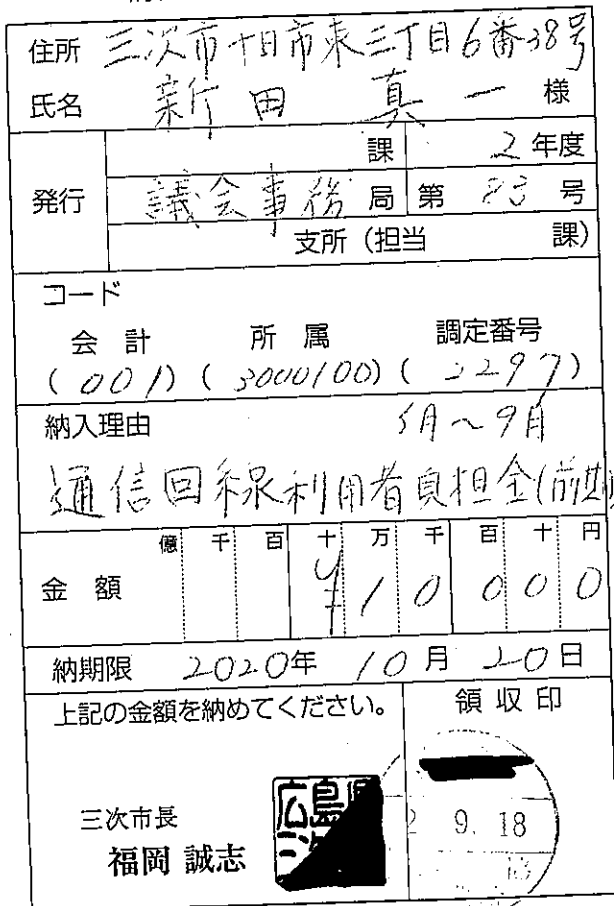 住所 三次市十日市東三丁目6番38号
氏名 新田 真一 様
課 2年度
発行 議会事務局 第 83 号
支所(担当 課)
コード
会計 所属 調定番号
(001)(3000100)(2297)
納入理由 5月~9月
通信回線利用者負担金(前期
億 千 百 十 万 千 百 十 円
金額 ¥10000
納期限 2020年10月20日
上記の金額を納めてください。 領収印
三次市長
福岡 誠志
広島
2 9. 18